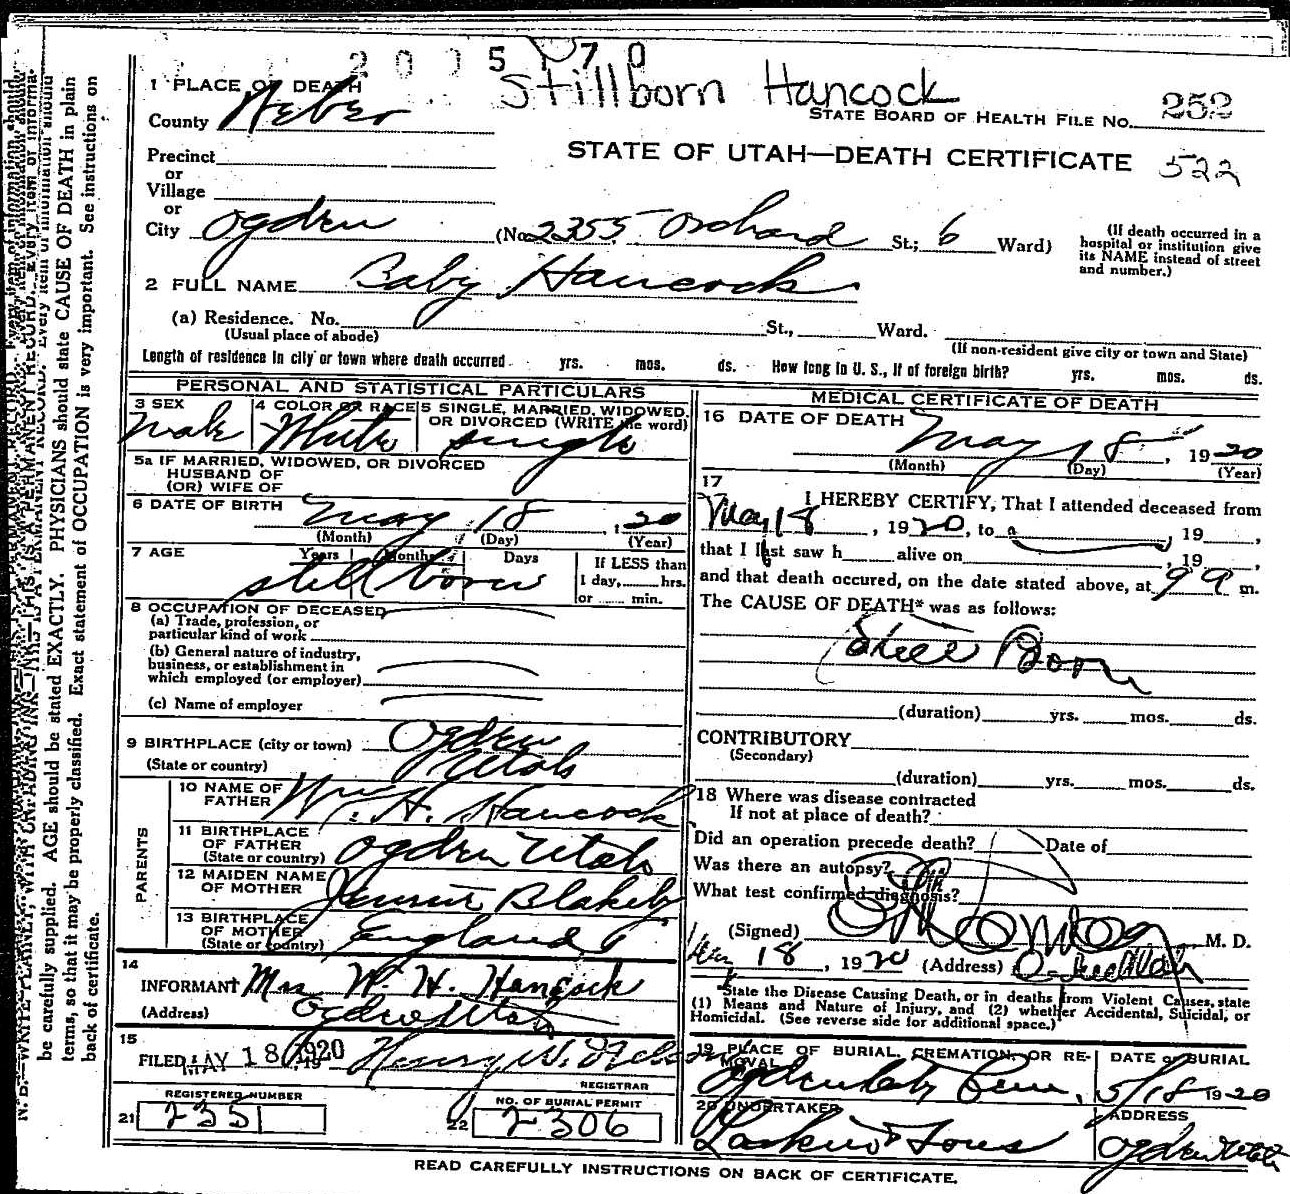 2005170
Stillborn Hancock
1 PLACE OF DEATH
County Weber
STATE BOARD OF HEALTH FILE NO. 252
STATE OF UTAH—DEATH CERTIFICATE 522
Precinct
or
Village
or
City Ogden (No. 2355 Orchard St.; 6 Ward)
(If death occurred in a hospital or institution give its NAME instead of street and number.)
2 FULL NAME Baby Hancock
(a) Residence. No. St., Ward.
(Usual place of abode) (If non-resident give city or town and State)
Length of residence in city or town where death occurred yrs. mos. ds. How long in U. S., if of foreign birth? yrs. mos. ds.
PERSONAL AND STATISTICAL PARTICULARS
3 SEX Male
4 COLOR OR RACE White
5 SINGLE, MARRIED, WIDOWED, OR DIVORCED (WRITE the word) single
5a IF MARRIED, WIDOWED, OR DIVORCED
HUSBAND OF
(OR) WIFE OF
6 DATE OF BIRTH May 18, 20
(Month) (Day) (Year)
7 AGE Years Months Days If LESS than
still born 1 day, hrs.
or min.
8 OCCUPATION OF DECEASED
(a) Trade, profession, or
particular kind of work
(b) General nature of industry,
business, or establishment in
which employed (or employer)
(c) Name of employer
9 BIRTHPLACE (city or town) Ogden
(State or country) Utah
PARENTS
10 NAME OF FATHER Wm. H. Hancock
11 BIRTHPLACE OF FATHER (State or country) Ogden Utah
12 MAIDEN NAME OF MOTHER Jennie Blakely
13 BIRTHPLACE OF MOTHER (State or country) England
14
INFORMANT Mrs W. H. Hancock
(Address) Ogden Utah
15
FILED MAY 18 1920, 19 Henry W.
REGISTRAR
REGISTERED NUMBER
21 235
NO. OF BURIAL PERMIT
22 2306
MEDICAL CERTIFICATE OF DEATH
16 DATE OF DEATH May 18, 1920
(Month) (Day) (Year)
17
I HEREBY CERTIFY, That I attended deceased from
May 18, 1920, to , 19 ,
that I last saw h alive on , 19 ,
and that death occured, on the date stated above, at 9 m.
The CAUSE OF DEATH* was as follows:
Still Born
(duration) yrs. mos. ds.
CONTRIBUTORY
(Secondary)
(duration) yrs. mos. ds.
18 Where was disease contracted
If not at place of death?
Did an operation precede death? Date of
Was there an autopsy?
What test confirmed diagnosis?
(Signed) M. D.
18, 1920 (Address)
State the Disease Causing Death, or in deaths from Violent Causes, state
(1) Means and Nature of Injury, and (2) whether Accidental, Suicidal, or
Homicidal. (See reverse side for additional space.)
19 PLACE OF BURIAL, CREMATION, OR REMOVAL DATE OF BURIAL
Ogden City Cem, 5/18 1920
20 UNDERTAKER ADDRESS
Larkin & Sons Ogden Utah
READ CAREFULLY INSTRUCTIONS ON BACK OF CERTIFICATE.
be carefully supplied. AGE should be stated EXACTLY. PHYSICIANS should state CAUSE OF DEATH in plain
terms, so that it may be properly classified. Exact statement of OCCUPATION is very important. See instructions on
back of certificate.